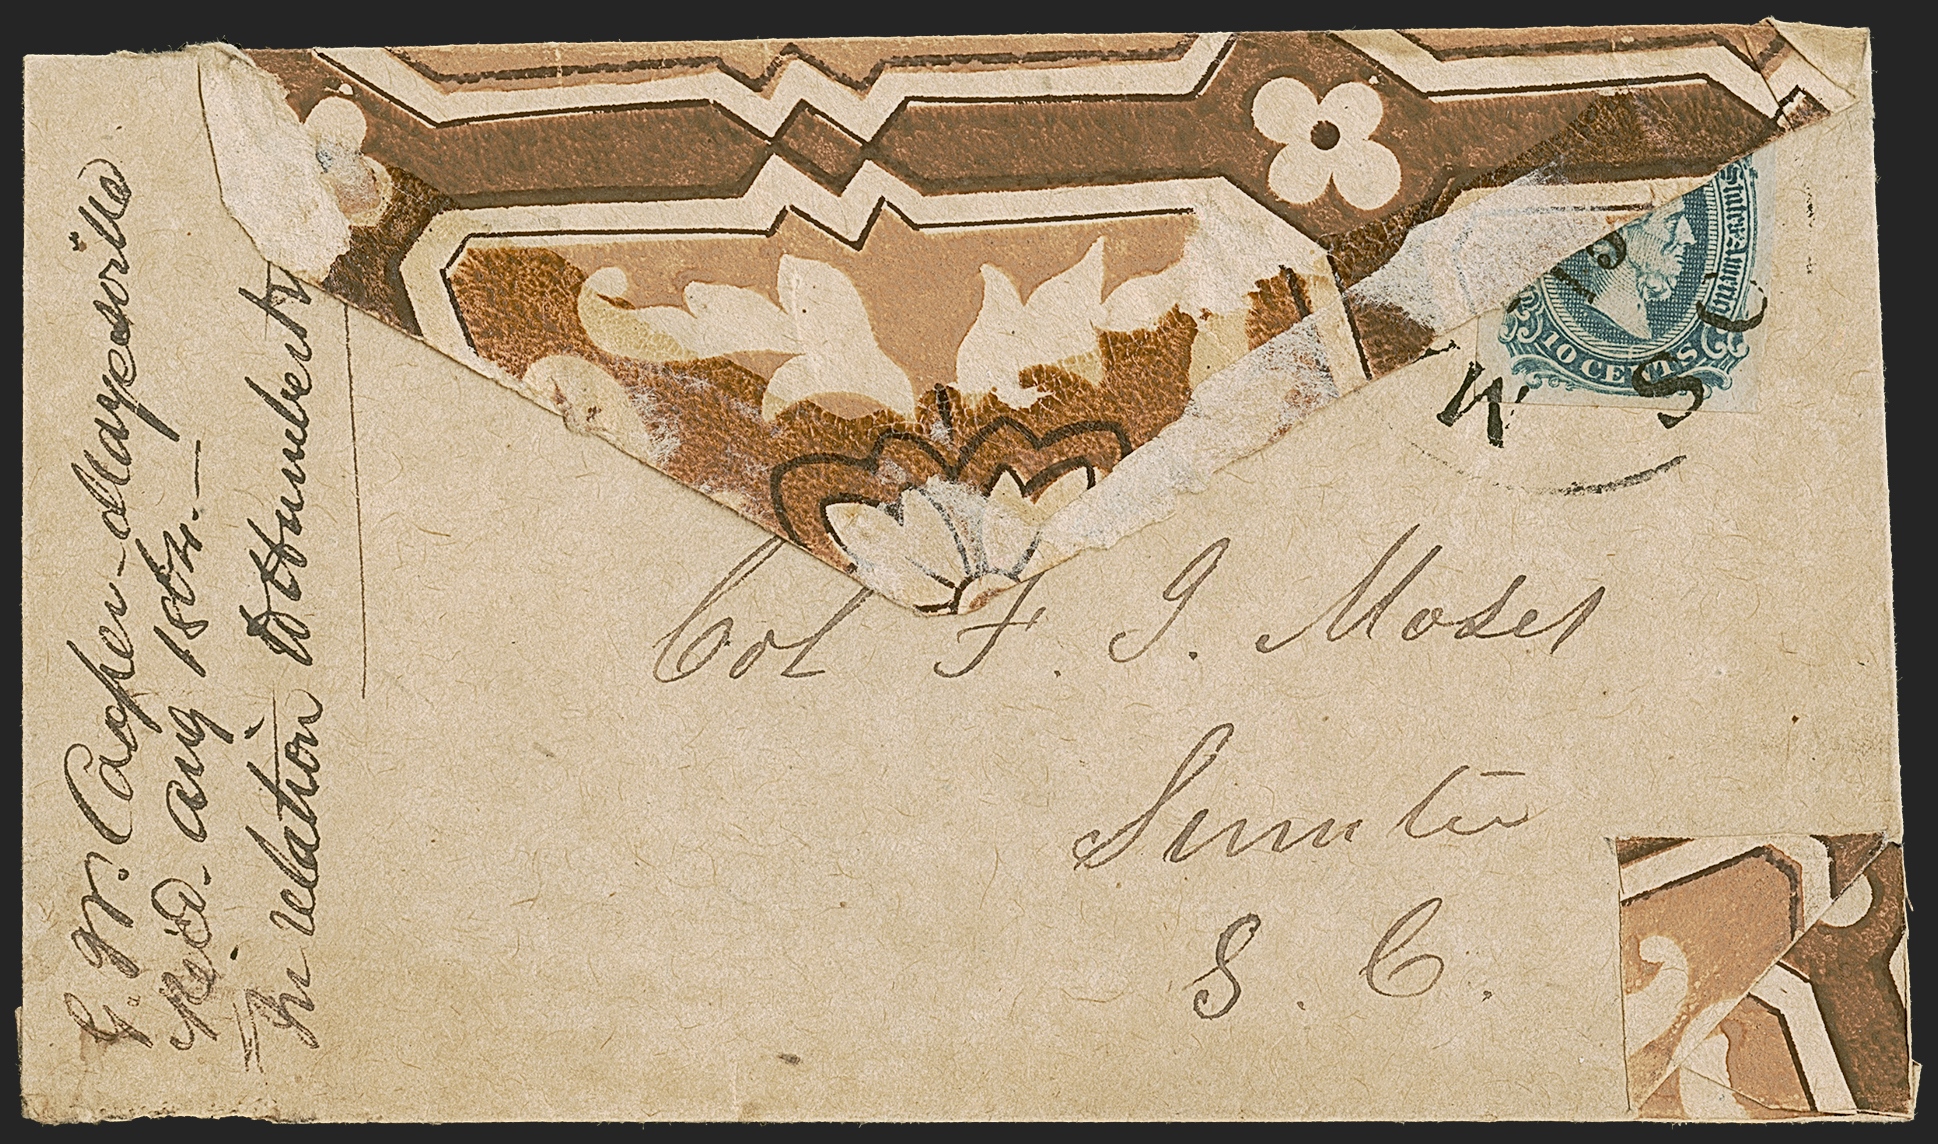 G. W. Cooper - Mayesville
Rec'd. Aug 1864. —
In relation to Humbert
10 CENTS
15
W
S C
Col F. J. Moses
Sumter
S. C.